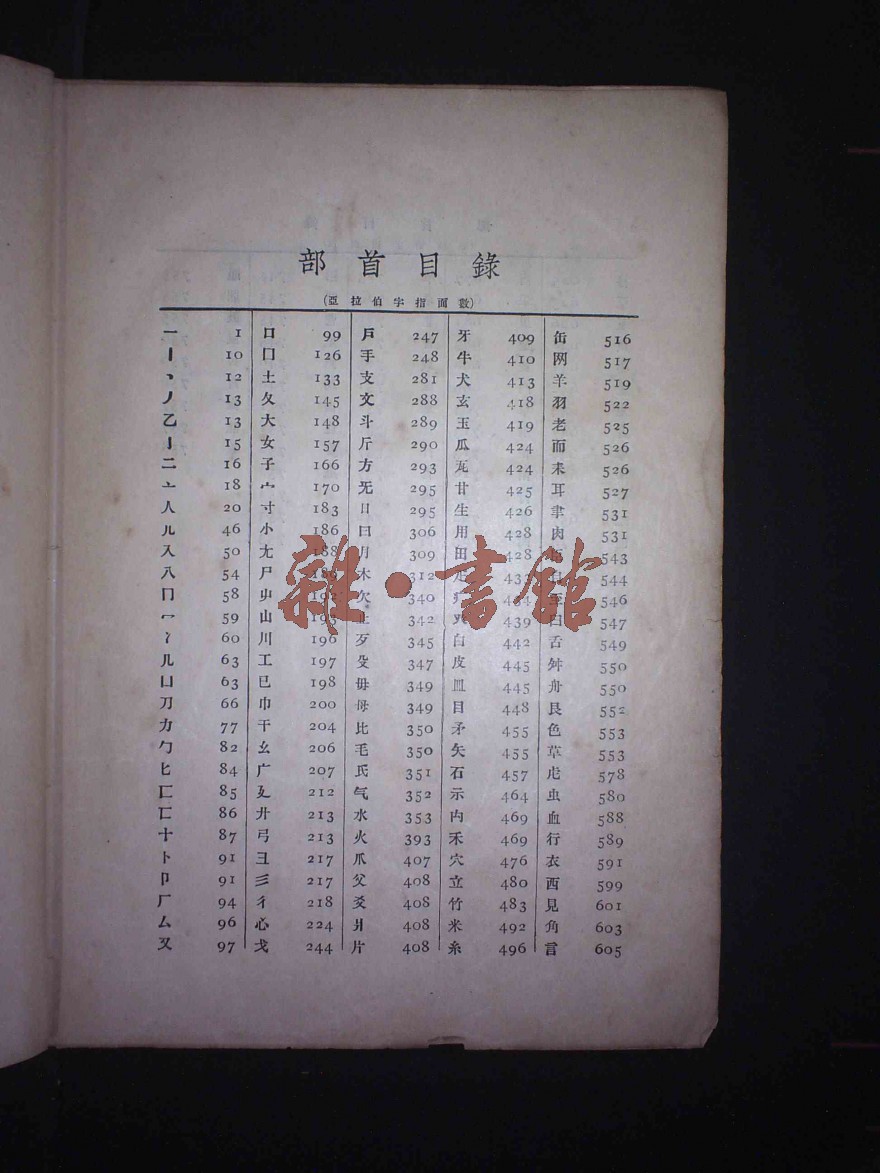 部首目錄
(亞拉伯字指面數)
一 1 口 99 戶 247 牙 409 缶 516
丨 10 囗 126 手 248 牛 410 网 517
丶 12 土 133 支 281 犬 413 羊 519
丿 13 夂 145 文 288 玄 418 羽 522
乙 13 大 148 斗 289 玉 419 老 525
亅 15 女 157 斤 290 瓜 424 而 526
二 16 子 166 方 293 瓦 424 耒 526
亠 18 宀 170 无 295 甘 425 耳 527
人 20 寸 183 日 295 生 426 聿 531
儿 46 小 186 曰 306 用 428 肉 531
入 50 尢 188 月 309 田 428 543
八 54 尸 木 312 疋 544
冂 58 屮 欠 340 疒 至 546
冖 59 山 193 止 342 癶 439 臼 547
冫 60 川 196 歹 345 白 442 舌 549
几 63 工 197 殳 347 皮 445 舛 550
凵 63 已 198 毋 349 皿 445 舟 550
刀 66 巾 200 母 349 目 448 艮 552
力 77 干 204 比 350 矛 455 色 553
勹 82 幺 206 毛 350 矢 455 草 553
匕 84 广 207 氏 351 石 457 虍 578
匚 85 廴 212 气 352 示 464 虫 580
匸 86 廾 213 水 353 禸 469 血 588
十 87 弓 213 火 393 禾 469 行 589
卜 91 彐 217 爪 407 穴 476 衣 591
卩 91 彡 217 父 408 立 480 西 599
厂 94 彳 218 爻 408 竹 483 見 601
厶 96 心 224 爿 408 米 492 角 603
又 97 戈 244 片 408 糸 496 言 605
雜·書館